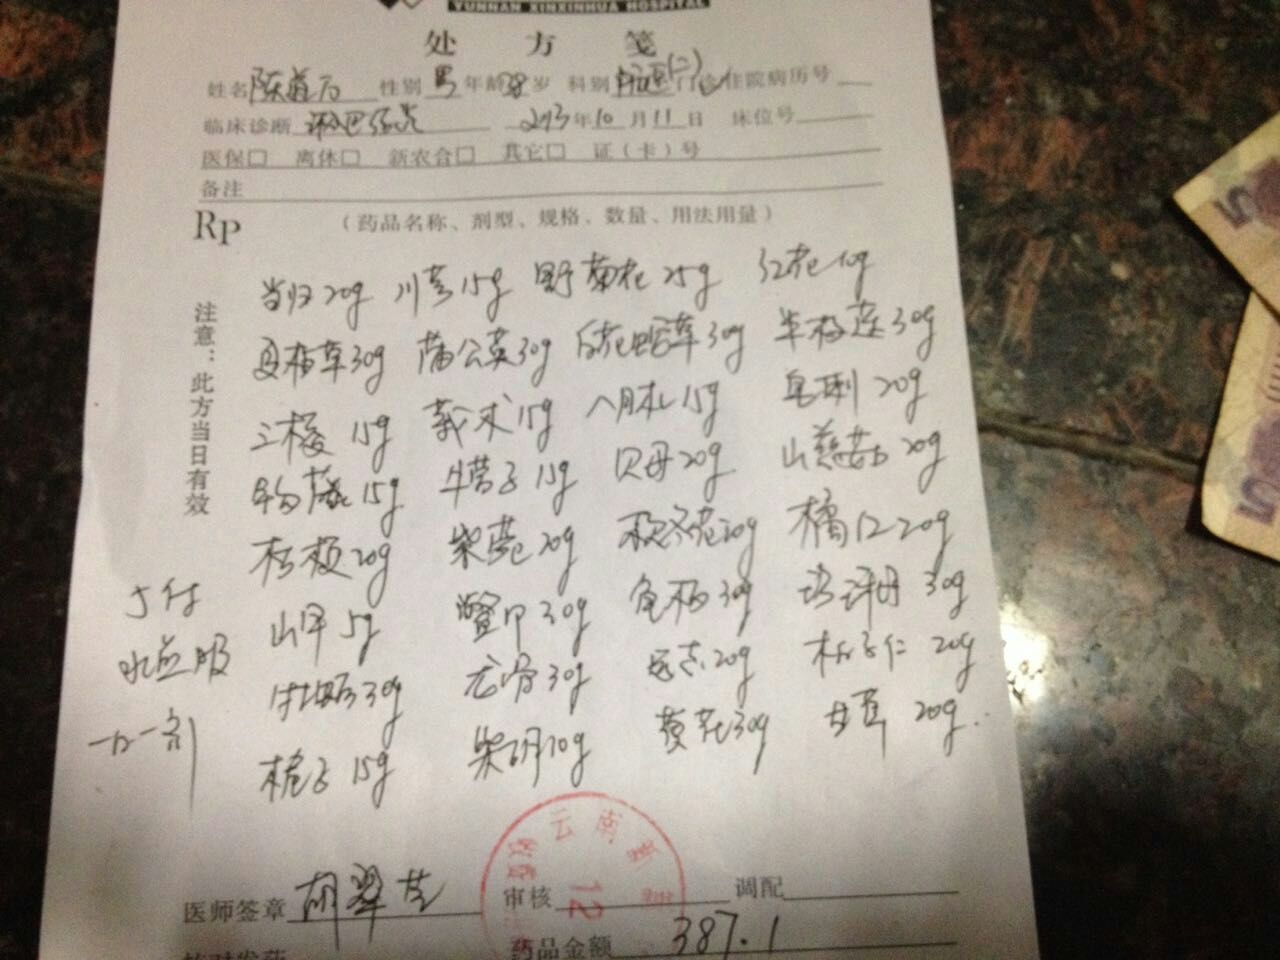 YUNNAN XINXINHUA HOSPITAL
处 方 笺
姓名 陈 性别 男 年龄 岁 科别 门诊/住院病历号
临床诊断 淋巴 2013年10月11日 床位号
医保□ 离休□ 新农合□ 其它□ 证（卡）号
备注
Rp （药品名称、剂型、规格、数量、用法用量）
注意：此方当日有效
当归20g 川芎15g 野菊花25g 红花10g
夏枯草30g 蒲公英30g 白花蛇舌草30g 半枝莲30g
三棱15g 莪术15g 八月札15g 20g
15g 牛蒡子15g 贝母20g 山慈菇20g
桔梗20g 紫菀20g 款冬花20g 橘红20g
山甲5g 鳖甲30g 龟板30g 30g
牡蛎30g 龙骨30g 远志20g 柏子仁20g
栀子15g 柴胡10g 黄芪30g 甘草20g
5付
水煎服
一日一剂
云南新
收费
12
医师签章 胡翠芳 审核 调配
药品金额 387.1
核对发药